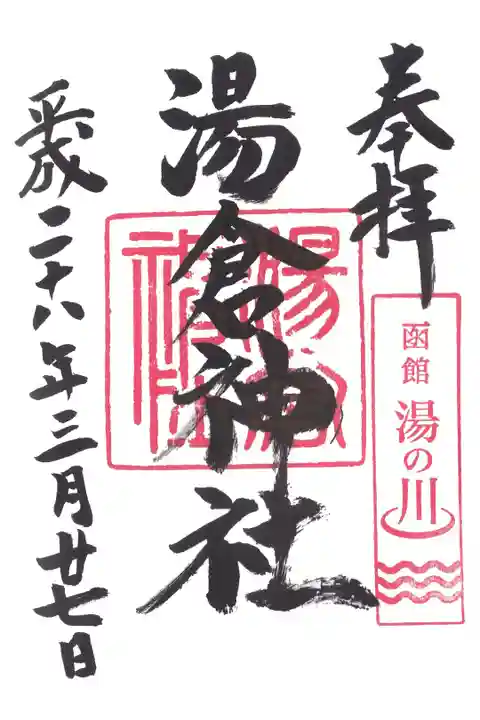 奉拝
函館 湯の川
湯倉神社
湯倉神社
平成二十八年三月廿七日